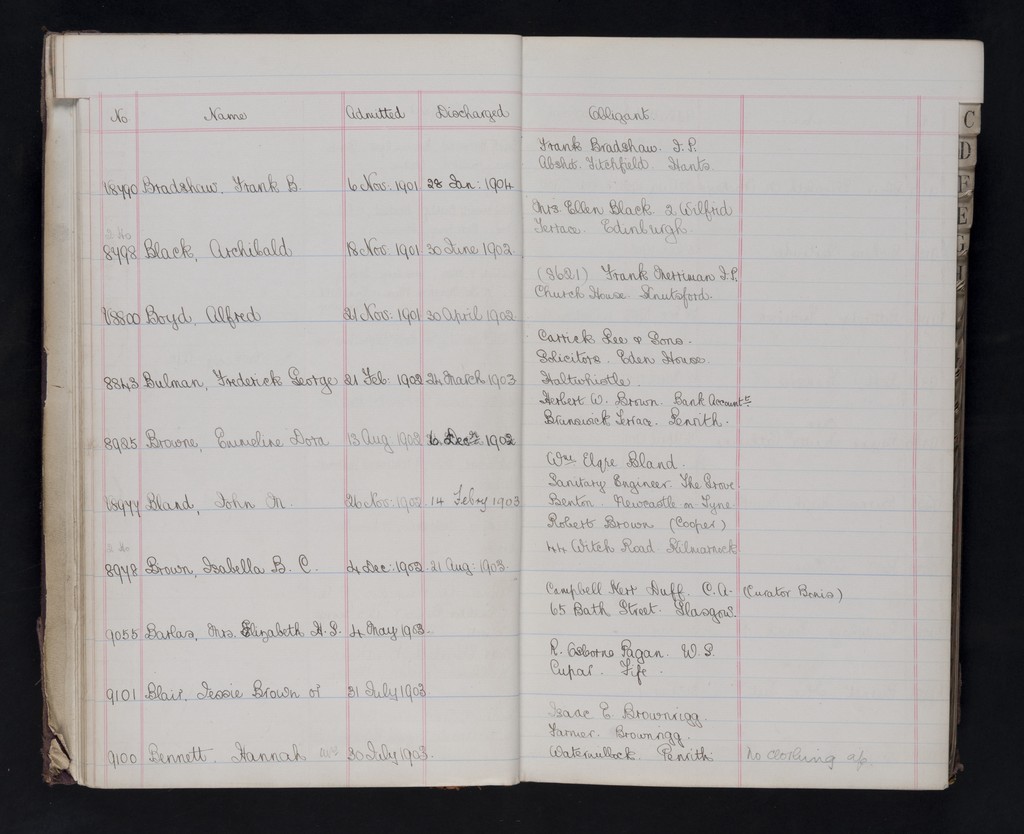 No Name Admitted Discharged Obligant
Frank Bradshaw. J.P.
Titchfield. Hants.
V8790 Bradshaw, Frank B. 6 Nov. 1901 28 Jan: 1904
Mrs. Ellen Black 2 Wilfrid
Terrace. Edinburgh.
8798 Black, Archibald 18 Nov. 1901 30 June 1902.
(8621) Frank Merriman J.P.
Church House Knutsford.
V8800 Boyd, Alfred 21 Nov. 1901 30 April 1902.
Carrick Lee & Sons.
Solicitors. Eden House.
Haltwhistle.
8843 Bulman, Frederick George 21 Feb. 1902 24 March 1903.
Herbert W. Brown. Bank Accountt
Brunswick Terrace. Penrith.
8925 Browne, Emmeline Dora 13 Aug. 1902 16 Decr 1902
Wm Elgre Bland.
Sanitary Engineer. The Grove
Benton. Newcastle on Tyne
V8977 Bland, John M. 26 Nov. 1902. 14 Febry 1903
Robert Brown (Cooper)
44 Witch Road Kilmarnock
8978 Brown, Isabella B. C. 4 Dec: 1902. 21 Aug: 1903.
Campbell Kerr Duff. C.A. (Curator Bonis)
65 Bath Street. Glasgow.
9055 Barlas, Mrs. Elizabeth H. S. 4 May 1903.
R. Osborne Pagan. W.S.
Cupar. Fife.
9101 Blair, Jessie Brown or 31 July 1903.
Isaac E. Brownrigg.
Farmer. Brownrigg.
9100 Bennett. Hannah 30 July 1903. Watermillock. Penrith No clothing a/c.